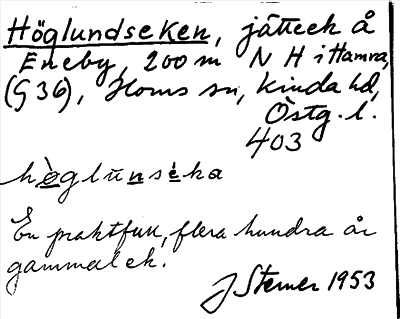 Höglundseken, jätteek å
Eneby, 200 m N H i Hamra,
(G 36), Horns sn, Kinda hd,
Östg. l.
403
höglunséka
En praktfull, flera hundra år
gammal ek.
J Sterner 1953